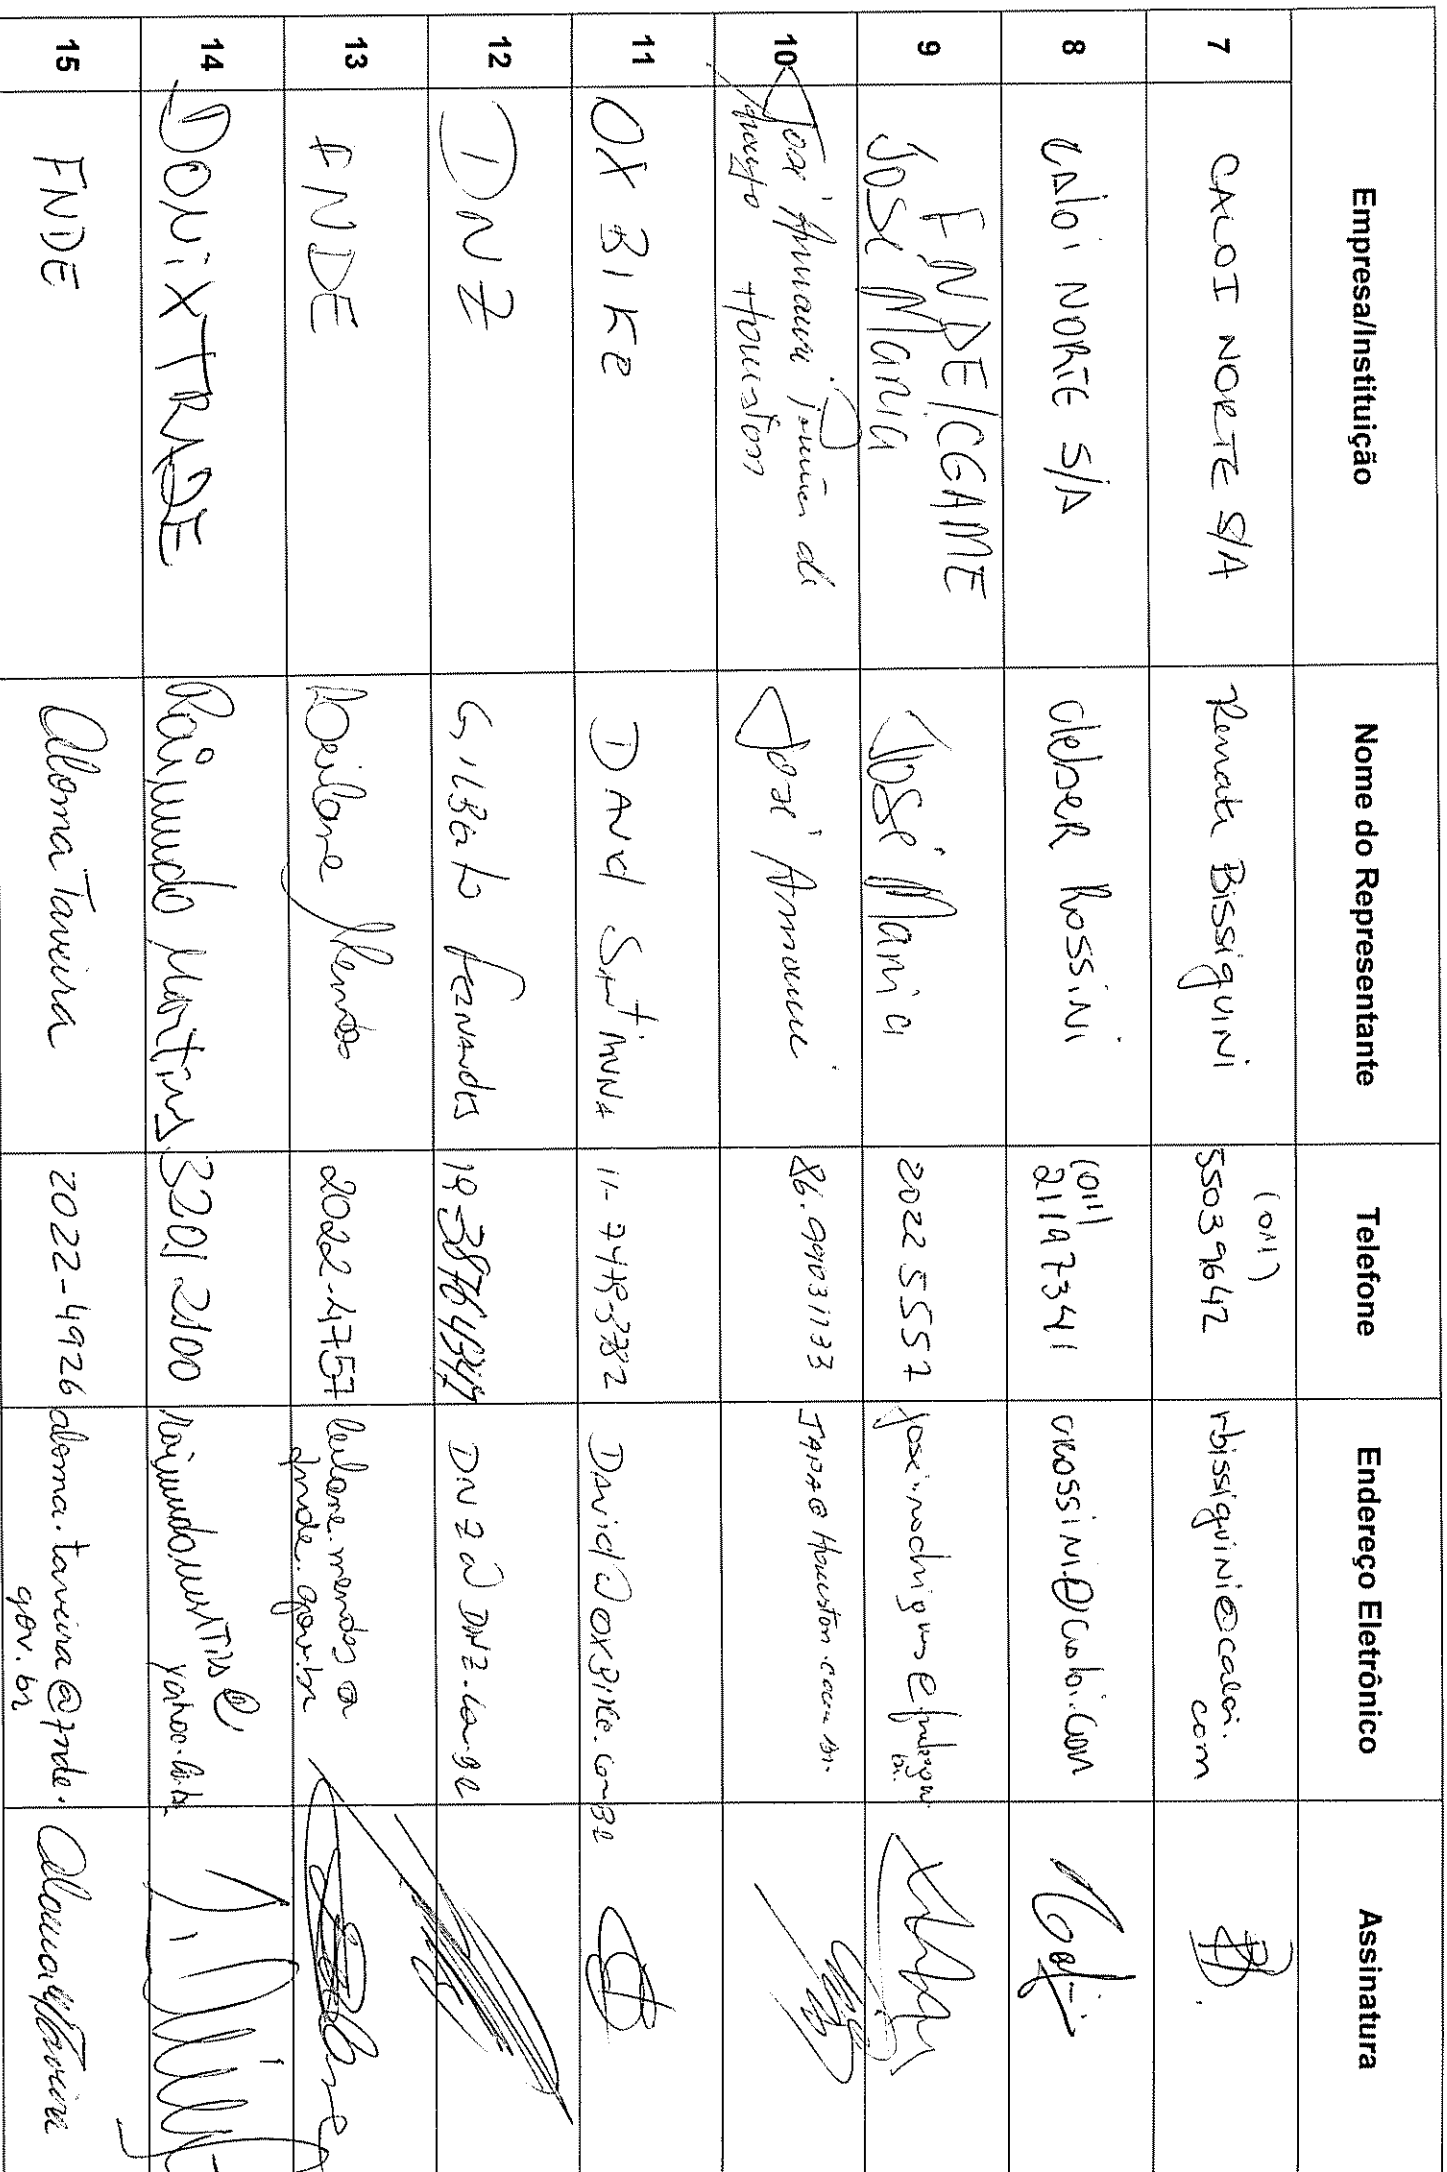 Empresa/Instituição Nome do Representante Telefone Endereço Eletrônico Assinatura
7 CALOI NORTE S/A Renata Bissiguini (011) 55039642 rbissiguini@caloi.com
8 Caloi NORTE S/A Cleber Rossini (011) 21197341 crossini@caloi.com
9 FNDE/CGAME José Maria José Maria 2022 5557
10 José Amauri Houston José Amauri 86.99031133 JAPA@Houston.com.br
11 OX BIKE David Santanna 11-7478-3782 David@oxbike.com.br
12 DNZ Gilberto Fernandes DNZ@DNZ.com.br
13 FNDE Leilane Mendes 2022-4757 leilane.mendes@fnde.gov.br
14 DONIX TRADE Raimundo Martins 3201 2100
15 FNDE Aloma Taveira 2022-4926 aloma.taveira@fnde.gov.br Aloma Taveira